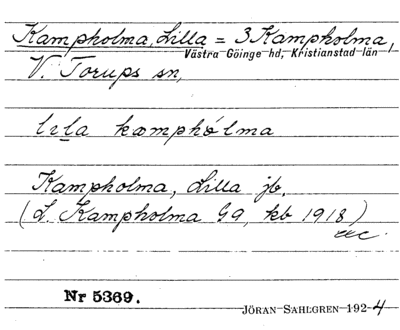 Kampholma, Lilla = 3 Kampholma,
Västra Göinge hd, Kristianstad län
V. Torups sn,
lıla kæmphólma
Kampholma, Lilla jb.
(L. Kampholma G9, kb 1918)
Nr 5369.
JÖRAN SAHLGREN 192 4